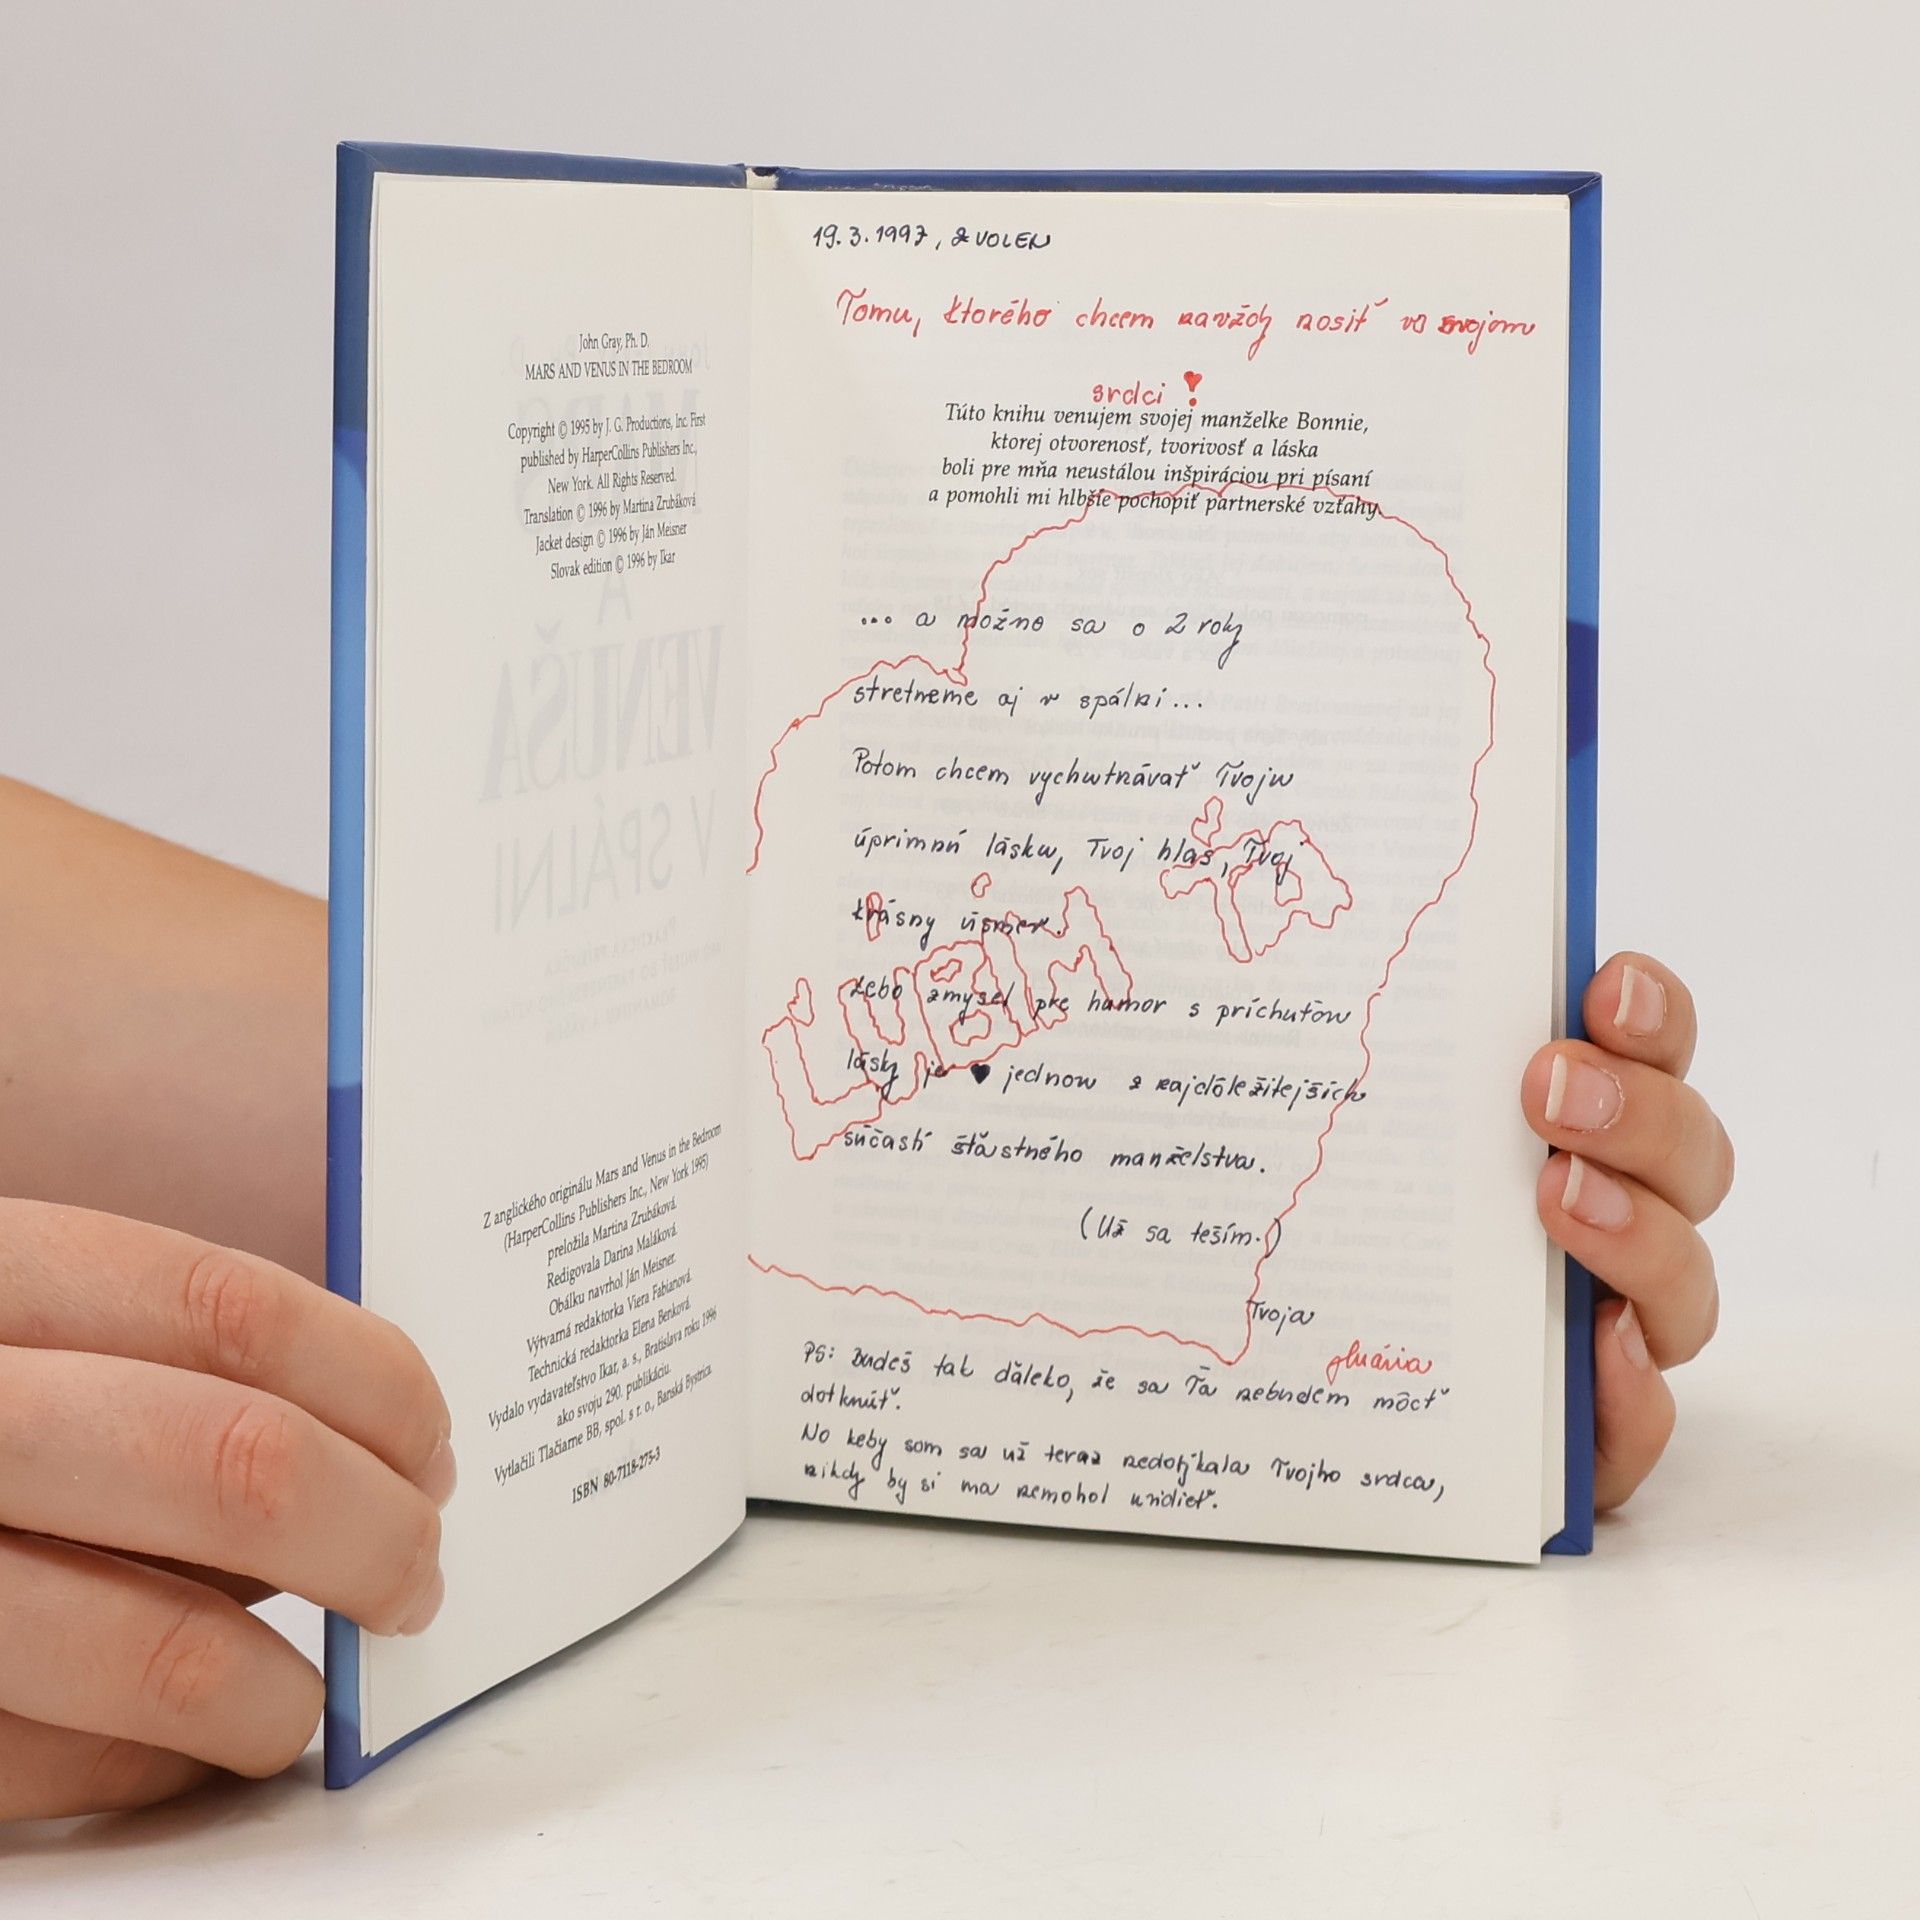 John Gray, Ph. D.
MARS AND VENUS IN THE BEDROOM
Copyright © 1995 by J. G. Productions, Inc. First
published by HarperCollins Publishers Inc.,
New York. All Rights Reserved.
Translation © 1996 by Martina Zrubáková
Jacket design © 1996 by Ján Meisner
Slovak edition © 1996 by Ikar
Z anglického originálu Mars and Venus in the Bedroom
(HarperCollins Publishers Inc., New York 1995)
preložila Martina Zrubáková.
Redigovala Darina Maláková.
Obálku navrhol Ján Meisner.
Výtvarná redaktorka Viera Fabianová.
Technická redaktorka Elena Benková.
Vydalo vydavateľstvo Ikar, a. s., Bratislava roku 1996
ako svoju 290. publikáciu.
Vytlačili Tlačiarne BB, spol. s r. o., Banská Bystrica.
ISBN 80-7118-275-3
19.3.1997, ZVOLEN
Tomu, ktorého chcem navždy nosiť vo svojom
srdci !
Túto knihu venujem svojej manželke Bonnie,
ktorej otvorenosť, tvorivosť a láska
boli pre mňa neustálou inšpiráciou pri písaní
a pomohli mi hlbšie pochopiť partnerské vzťahy.
... a možno sa o 2 roky
stretneme aj v spálni...
Potom chcem vychutnávať Tvoju
úprimnú lásku, Tvoj hlas, Tvoj
krásny úsmev.
Ľúbim Ťa
Lebo zmysel pre humor s príchuťou
lásky je ♥ jednou z najdôležitejších
súčastí šťastného manželstva.
(Už sa teším.)
Tvoja
Mária
PS: Budeš tak ďaleko, že sa Ťa nebudem môcť
dotknúť.
No keby som sa už teraz nedotýkala Tvojho srdca,
nikdy by si ma nemohol uvidieť.
VENUŠA
V SPÁLNI